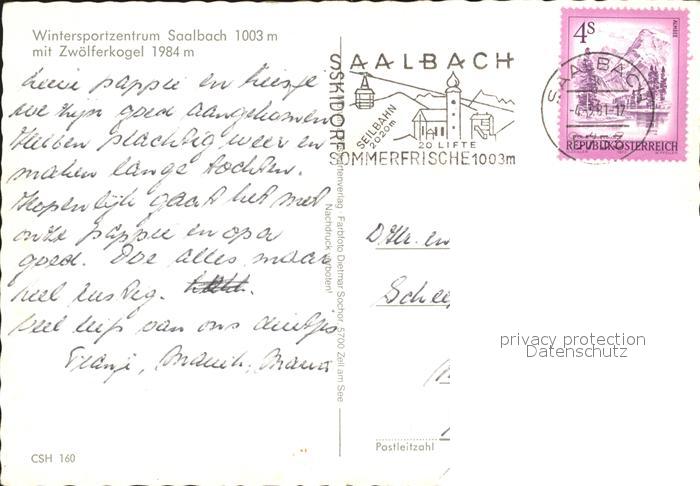 Wintersportzentrum Saalbach 1003 m
mit Zwölferkogel 1984 m
Lieve pappie en
we zijn goed aangekomen
Hebben prachtig weer en
maken lange tochten.
Hopenlijk gaat het met
onze pappie en opa
goed. Doe alles maar
heel rustig.
Veel liefs van ons
CSH 160
Kartenverlag · Farbfoto Dietmar Sochor, 5700 Zell am See
Nachdruck verboten!
SAALBACH
SKIDORF
SEILBAHN
2020m
20 LIFTE
SOMMERFRISCHE 1003m
SAALBACH
4S
ALMSEE
REPUBLIK ÖSTERREICH
D
en
Postleitzahl
privacy protection
Datenschutz